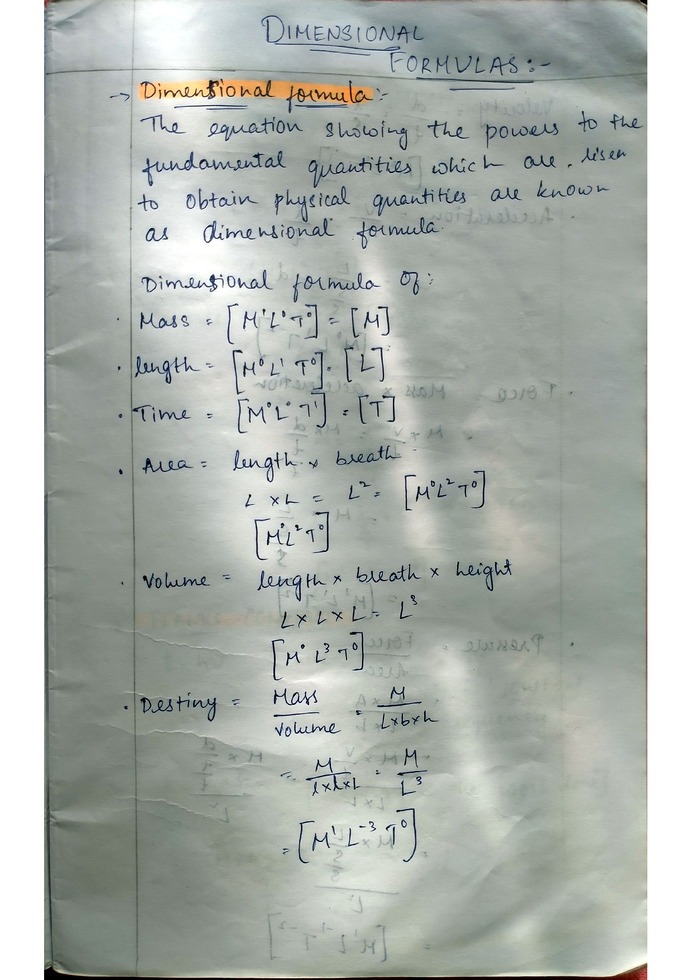 DIMENSIONAL
FORMULAS :-
→ Dimensional formula :-
The equation showing the powers to the
fundamental quantities which are risen
to obtain physical quantities are known
as dimensional formula.
Dimensional formula Of :
· Mass = [M¹L⁰T⁰] = [M]
· length = [M⁰L¹T⁰] = [L]
· Time = [M⁰L⁰T¹] = [T]
· Area = length × breath
L × L = L² = [M⁰L²T⁰]
[M⁰L²T⁰]
· Volume = length × breath × height
L × L × L = L³
[M⁰L³T⁰]
· Destiny = Mass/Volume = M/L×b×h
= M/l×l×L = M/L³
= [M¹L⁻³T⁰]